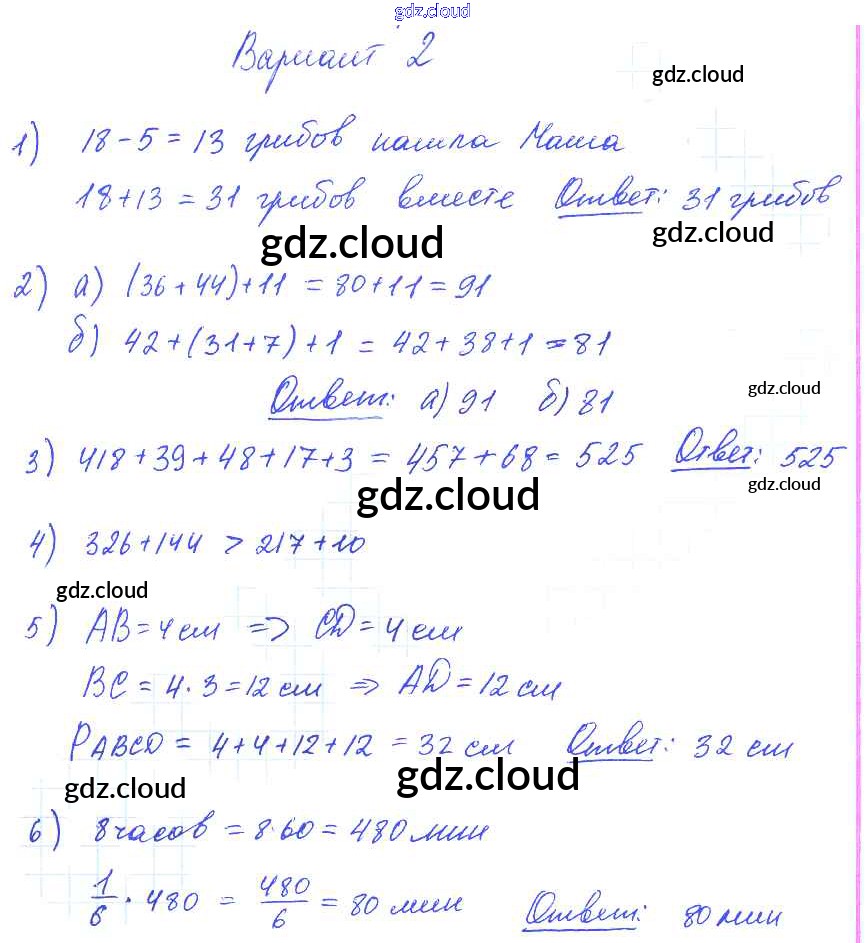 gdz.cloud
Вариант 2
gdz.cloud
1) 18-5 = 13 грибов нашла Маша
18+13 = 31 грибов вместе Ответ: 31 грибов
gdz.cloud gdz.cloud
2) а) (36+44)+11 = 80+11 = 91
б) 42+(31+7)+1 = 42+38+1 = 81
Ответ: а) 91 б) 81
gdz.cloud
3) 418+39+48+17+3 = 457+68 = 525 Ответ: 525
gdz.cloud gdz.cloud
4) 326+144 > 217+10
gdz.cloud
5) AB = 4 см => CD = 4 см
BC = 4·3 = 12 см => AD = 12 см
PABCD = 4+4+12+12 = 32 см Ответ: 32 см
gdz.cloud gdz.cloud
6) 8 часов = 8·60 = 480 мин
1/6 · 480 = 480/6 = 80 мин Ответ: 80 мин